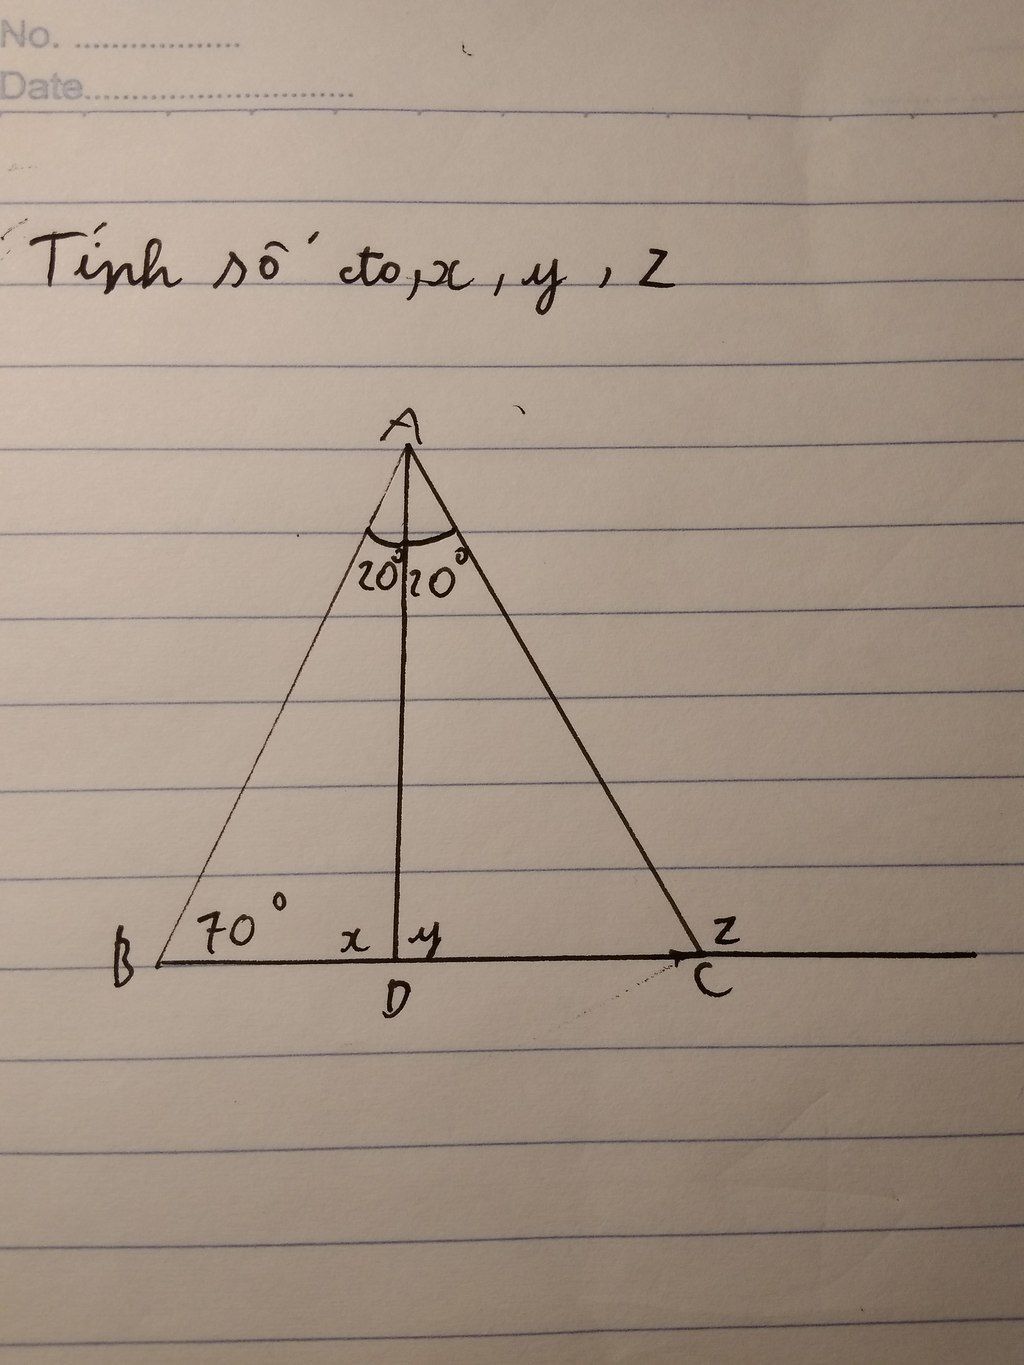 No. ..................
Date.............................
Tính số đo, x, y, z
A
20° 20°
B 70° x y z
D C